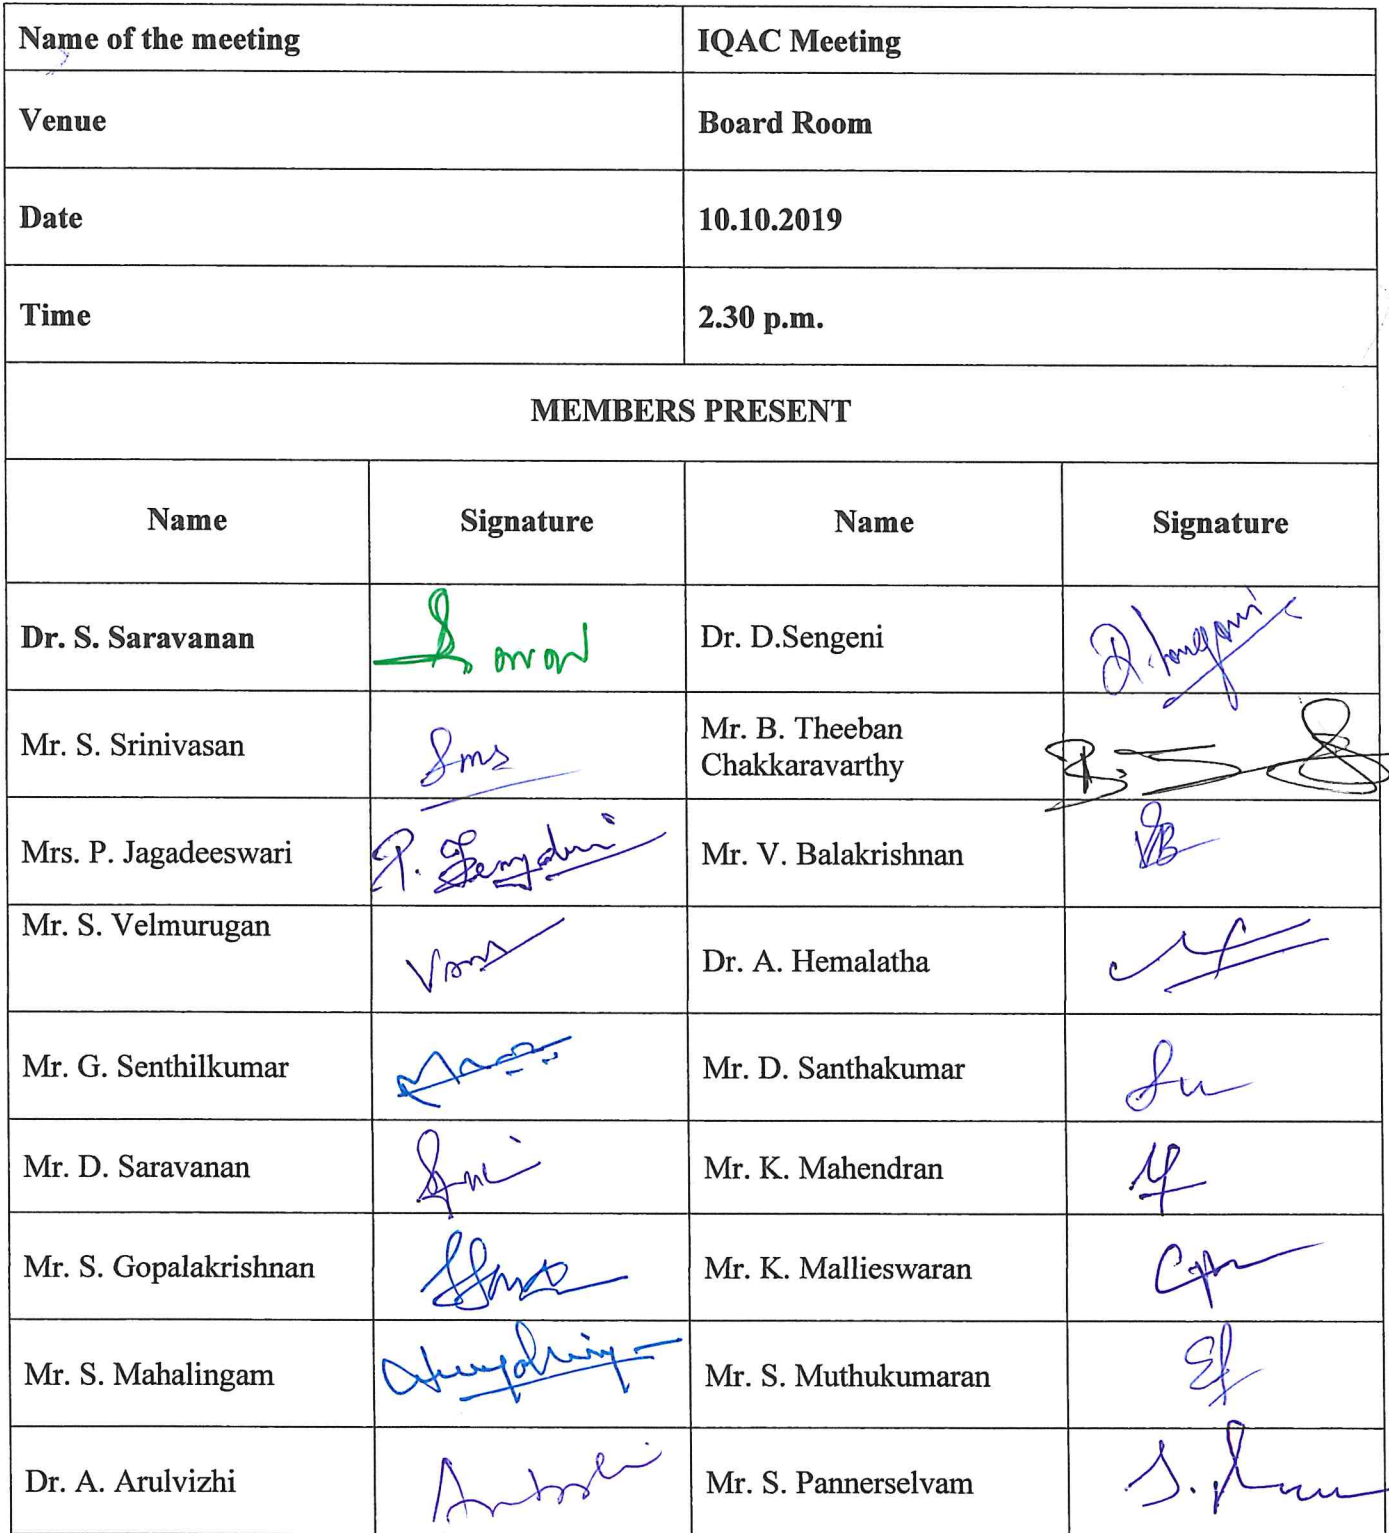 Name of the meeting IQAC Meeting
Venue Board Room
Date 10.10.2019
Time 2.30 p.m.
MEMBERS PRESENT
Name Signature Name Signature
Dr. S. Saravanan Dr. D.Sengeni
Mr. S. Srinivasan Mr. B. Theeban
Chakkaravarthy
Mrs. P. Jagadeeswari Mr. V. Balakrishnan
Mr. S. Velmurugan Dr. A. Hemalatha
Mr. G. Senthilkumar Mr. D. Santhakumar
Mr. D. Saravanan Mr. K. Mahendran
Mr. S. Gopalakrishnan Mr. K. Mallieswaran
Mr. S. Mahalingam Mr. S. Muthukumaran
Dr. A. Arulvizhi Mr. S. Pannerselvam